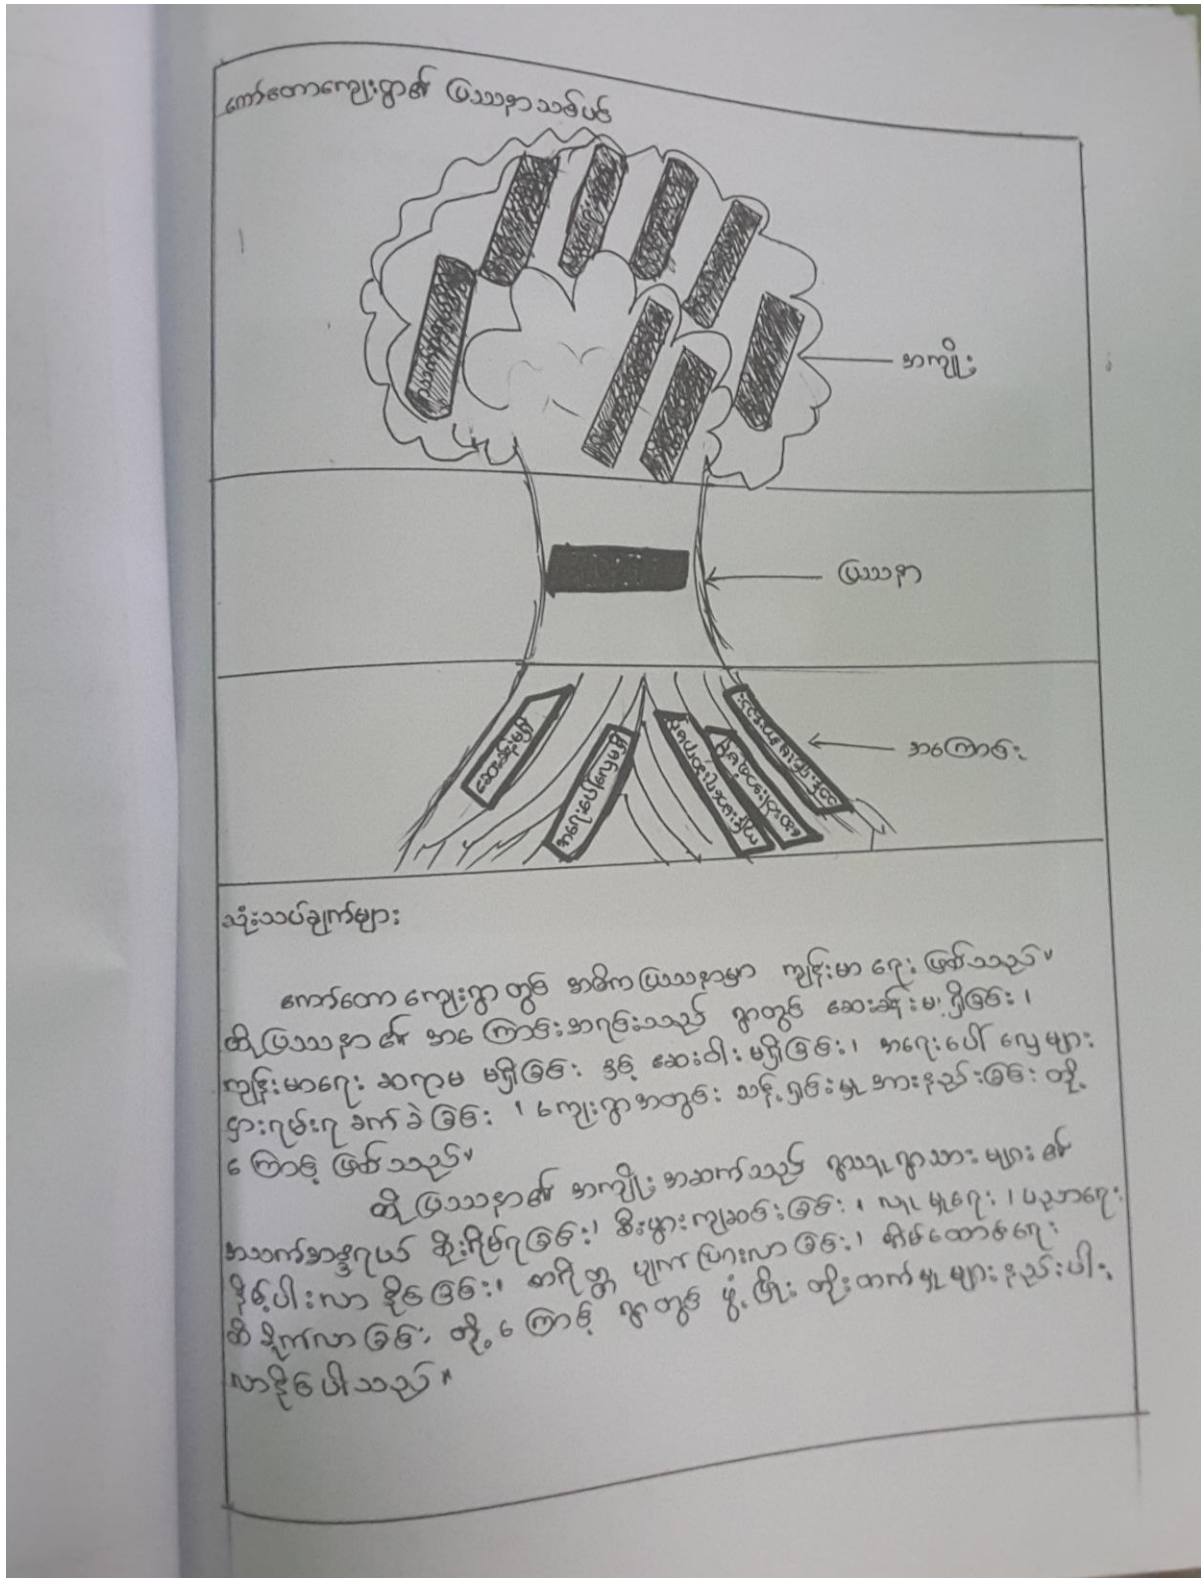 ကော်တောကျေးရွာ၏ ပြဿနာသစ်ပင်
အကျိုး
ပြဿနာ
အကြောင်း
ဆေးခန်းမရှိ
သုံးသပ်ချက်များ
ကော်တောကျေးရွာတွင် အဓိကပြဿနာမှာ ကျန်းမာရေး ဖြစ်သည်။
ထိုပြဿနာ၏ အကြောင်းအရင်းသည် ရွာတွင် ဆေးခန်းမရှိခြင်း၊
ကျန်းမာရေး ဆရာမ မရှိခြင်း နှင့် ဆေးဝါးမရှိခြင်း၊ အရေးပေါ် လှေများ
ငှားရမ်းရ ခက်ခဲခြင်း ၊ ကျေးရွာအတွင်း သန့်ရှင်းမှု အားနည်းခြင်း တို့
ကြောင့် ဖြစ်သည်။
ထိုပြဿနာ၏ အကျိုးအဆက်သည် ရွာသူရွာသားများ ၏
အသက်အန္တရာယ် စိုးရိမ်ရခြင်း၊ စီးပွားကျဆင်းခြင်း၊ လူမှုရေး ၊ ပညာရေး
နိမ့်ပါးလာနိုင်ခြင်း၊ စာရိတ္တ ပျက်ပြားလာခြင်း၊ အိမ်ထောင်ရေး
ထိခိုက်လာခြင်း တို့ကြောင့် ရွာတွင် ဖွံ့ဖြိုးတိုးတက်မှုများနည်းပါး
လာနိုင်ပါသည်။